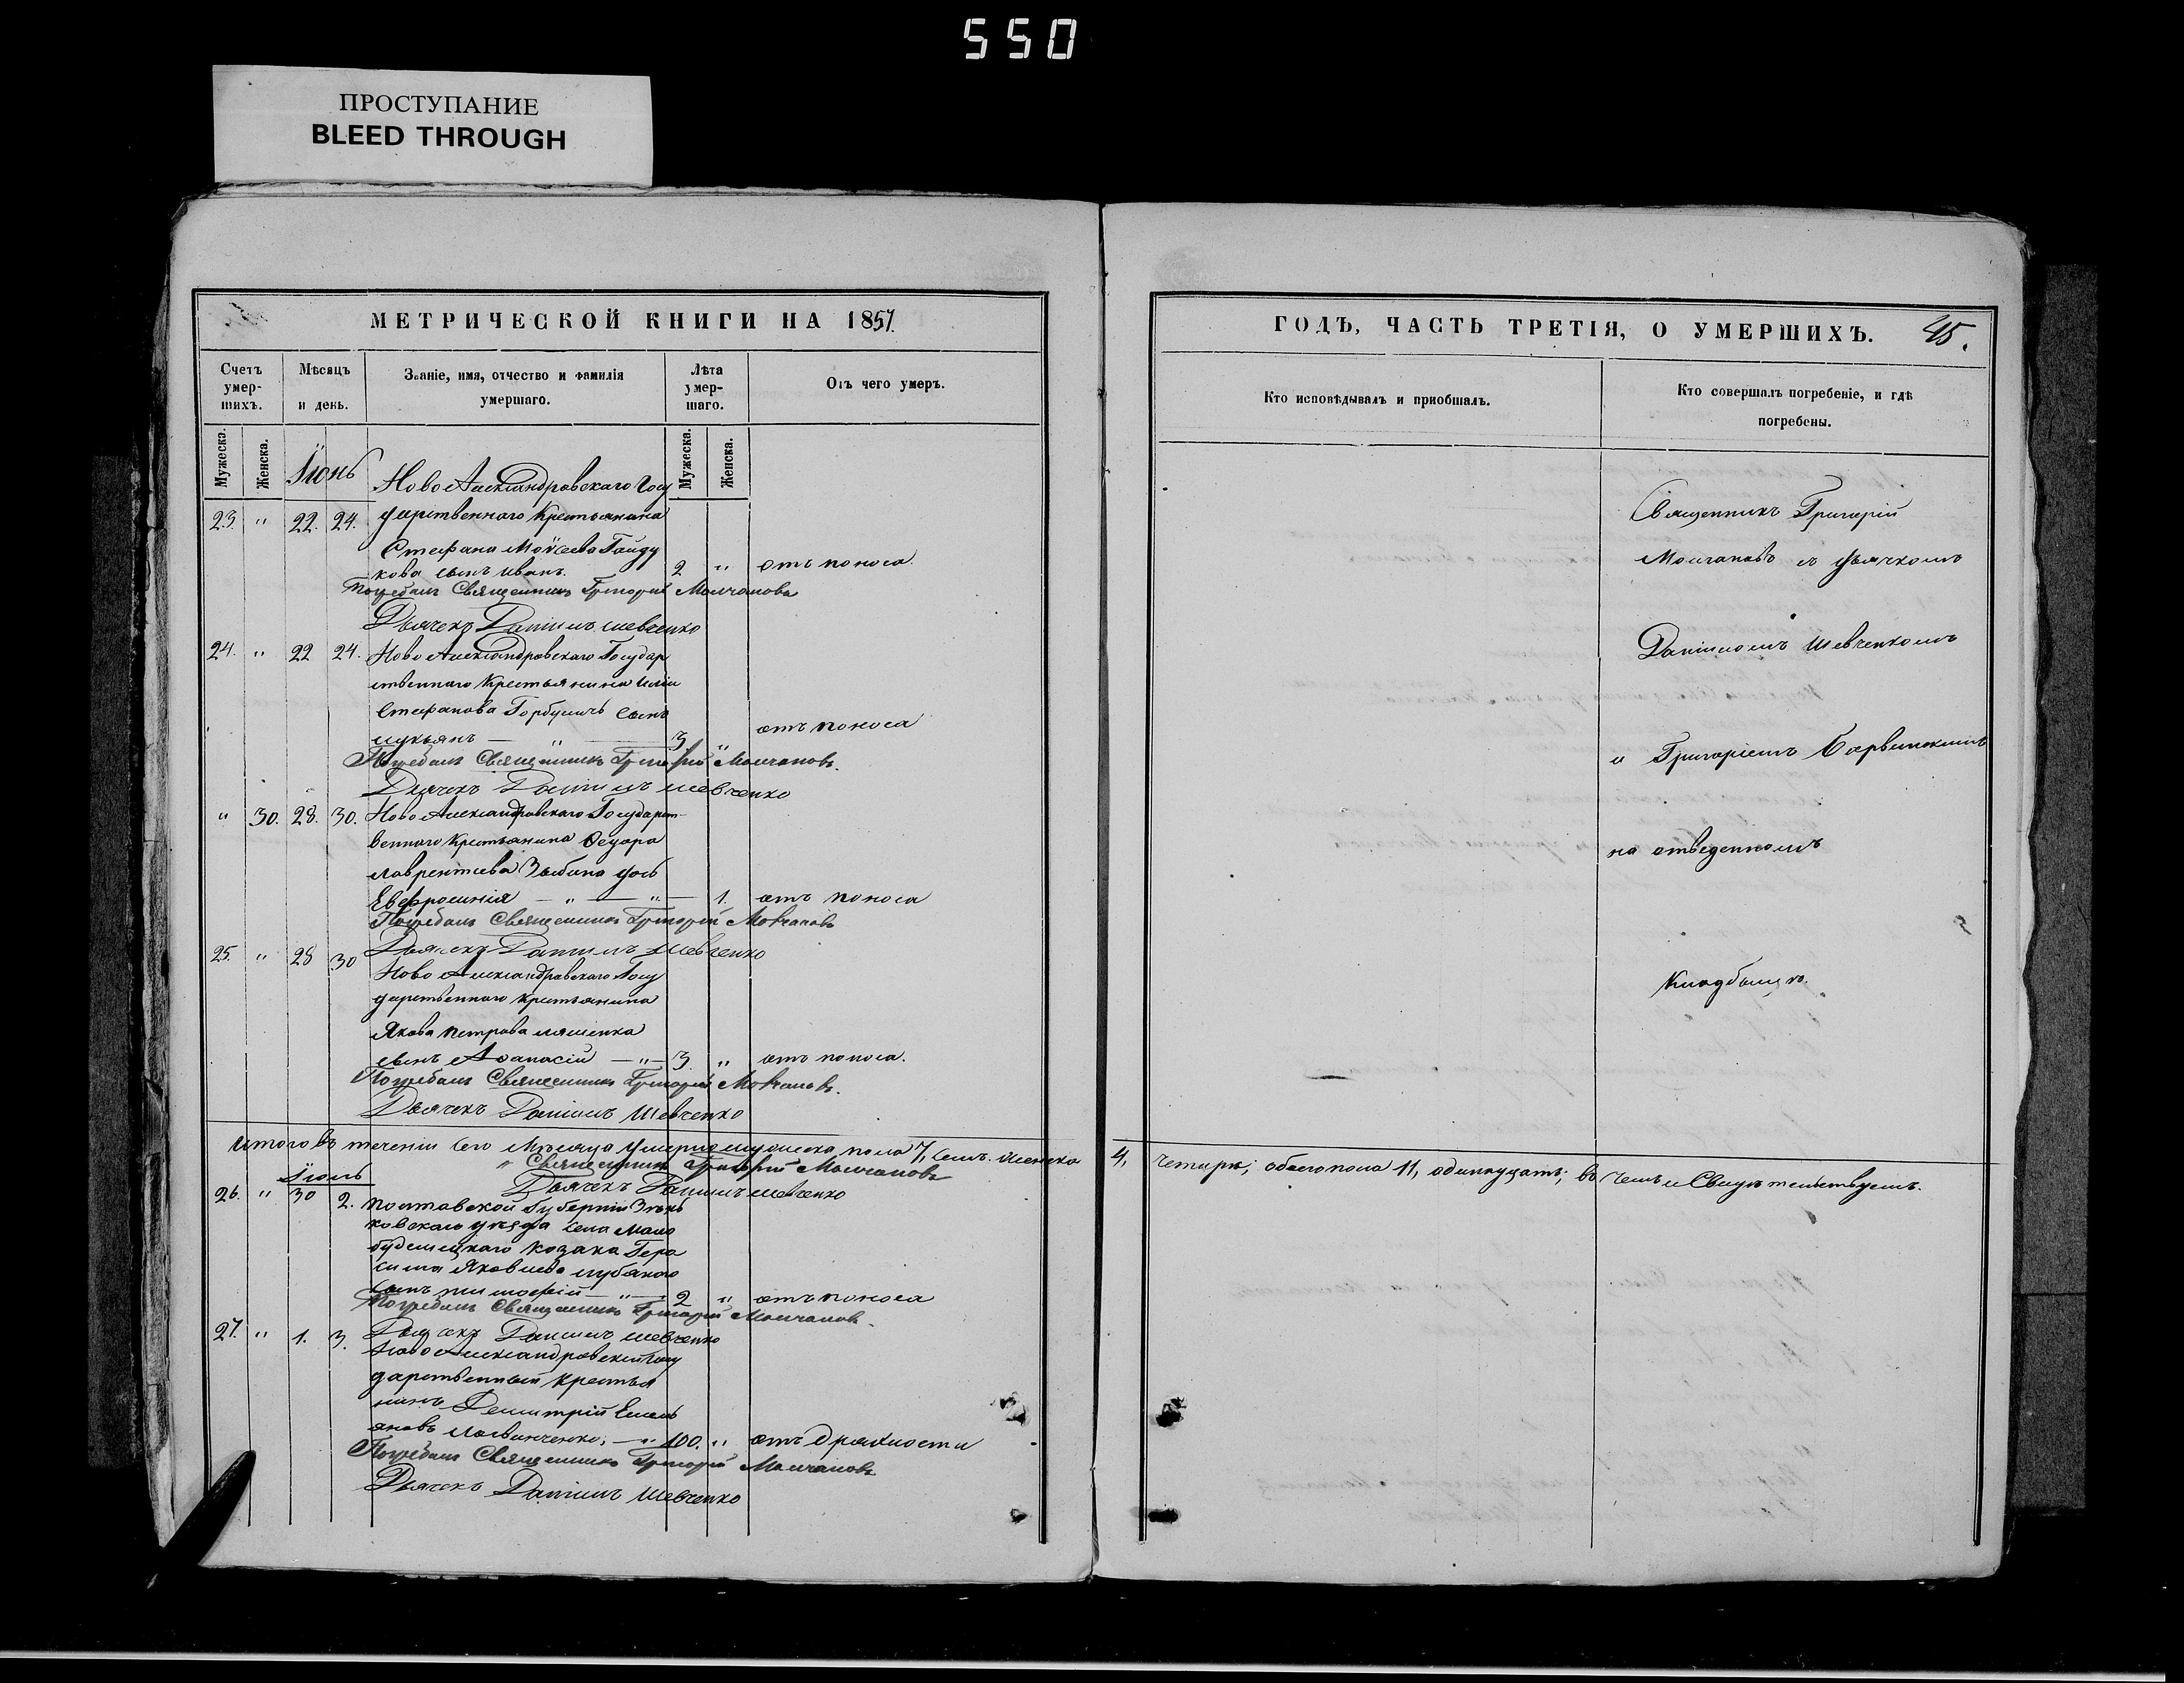 550
ПРОСТУПАНИЕ
BLEED THROUGH
МЕТРИЧЕСКОЙ КНИГИ НА 1857.
Счетъ умер-шихъ.
Мѣсяцъ и день.
Званіе, имя, отчество и фамилія умершаго.
Лѣта умер-шаго.
Отъ чего умеръ.
Мужеска.
Женска.
Мужеска.
Женска.
Іюнь
Ново Александровскаго Госу
23. " 22. 24. дарственнаго Крестьянина
Стефана Моѵсеева Гайду
кова сынъ Иванъ. 2 " отъ поноса.
Погребалъ Священникъ Григорій Молчановъ
Дьячекъ Даніилъ Шевченко
24. " 22 24. Ново Александровскаго Государ
ственнаго Крестьянина Иліи
Стефанова сынъ
Лукьянъ — " — 3. " отъ поноса
Погребалъ Священникъ Григорій Молчановъ.
Дьячекъ Даніилъ Шевченко
" 30. 28. 30. Ново Александровскаго Государст-
веннаго Крестьянина Ѳедора
Лаврентиева Зыбина дочь
Евфросинія — " — " — 1. отъ поноса
Погребалъ Священникъ Григорій Молчановъ
25. " 28 30 Дьячекъ Даніилъ Шевченко
Ново Александровскаго Госу
дарственнаго Крестьянина
Якова Петрова Ляшенка
сынъ Аѳанасій — " — 3 " отъ поноса.
Погребалъ Священникъ Григорій Молчановъ.
Дьячекъ Даніилъ Шевченко
Итого въ теченіи сего Мѣсяца умерло мужеска пола 7, семь. женска
" Священникъ Григорій Молчановъ
Іюль
Дьячекъ Даніилъ Шевченко
26. " 30 2. Полтавской Губерніи Зѣнь
ковскаго уѣзда села Мало
будищскаго козака Гера
сима Яковлева
сынъ Тимофей — " — 2 " отъ поноса
Погребалъ Священникъ Григорій Молчановъ.
27. " 1. 3. Дьячекъ Даніилъ Шевченко
Ново Александровскій Госу
дарственный Крестья
нинъ Димитрій Емель
яновъ — " 100. " отъ дряхлости
Погребалъ Священникъ Григорій Молчановъ
Дьячекъ Даніилъ Шевченко
ГОДЪ, ЧАСТЬ ТРЕТІЯ, О УМЕРШИХЪ.
45.
Кто исповѣдывалъ и приобщалъ.
Кто совершалъ погребеніе, и гдѣ погребены.
Священникъ Григорій
Молчановъ съ дьячкомъ
Даніиломъ Шевченкомъ
и Григоріемъ
на отведенномъ
Кладбищѣ.
4, четыре; обоего пола 11, одинадцать; въ чемъ и Свидѣтельствуемъ.